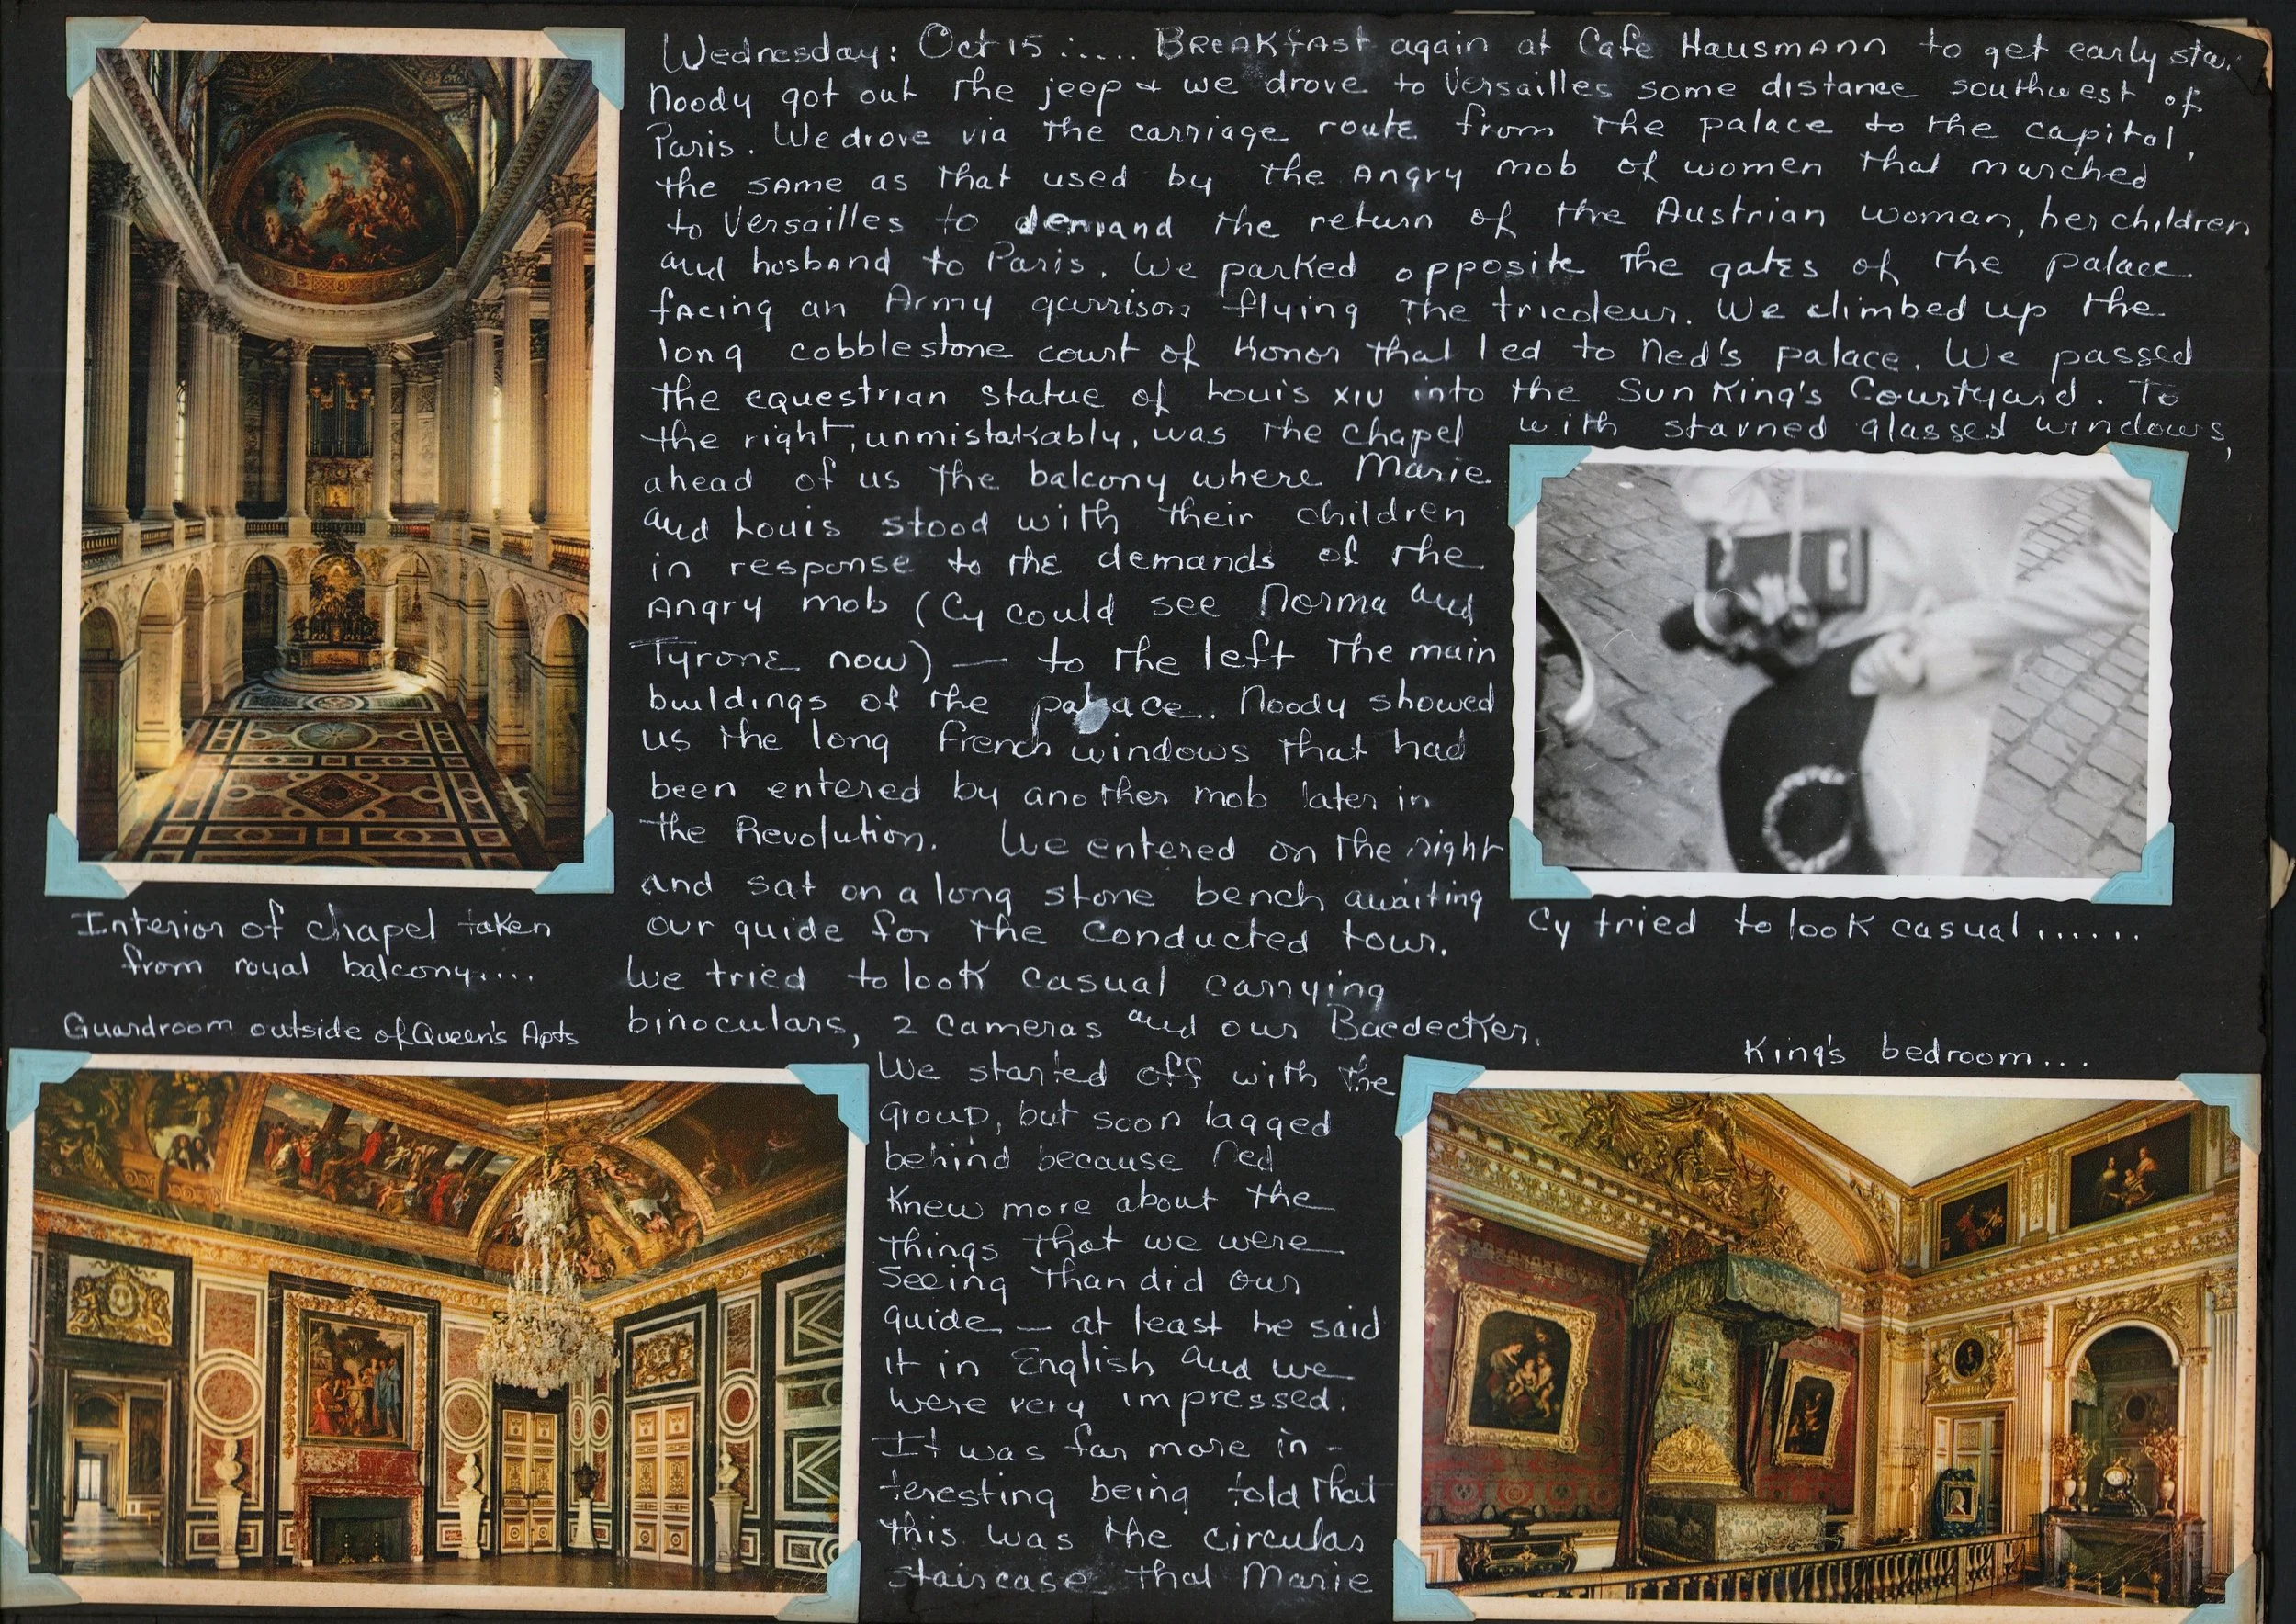 Wednesday: Oct 15 :.... Breakfast again at Cafe Hausmann to get early star
Noody got out the jeep & we drove to Versailles some distance southwest of
Paris. We drove via the carriage route from the palace to the capital,
the same as that used by the Angry mob of women that marched
to Versailles to demand the return of the Austrian woman, her children
and hosband to Paris. We parked opposite the gates of the palace
facing an Army garrison flying the tricoleur. We climbed up the
long cobblestone court of Honor that led to Ned's palace. We passed
the equestrian statue of Louis XIV into the Sun King's Courtyard. To
the right, unmistakably, was the chapel with stained glassed windows,
ahead of us the balcony where Marie
and Louis stood with their children
in response to the demands of the
Angry mob (Cy could see Norma and
Tyrone now) — to the left the main
buildings of the palace. Noody showed
us the long French windows that had
been entered by another mob later in
the Revolution. We entered on the right
and sat on a long stone bench awaiting
our guide for the conducted tour.
We tried to look casual carrying
binoculars, 2 cameras and our Baedecker.
We started off with the
group, but soon lagged
behind because Ned
knew more about the
things that we were
seeing than did our
guide — at least he said
it in English and we
were very impressed.
It was far more in-
teresting being told that
this was the circular
staircase that Marie
Interior of chapel taken
from royal balcony....
Cy tried to look casual......
Guardroom outside of Queen's Apts
King's bedroom...